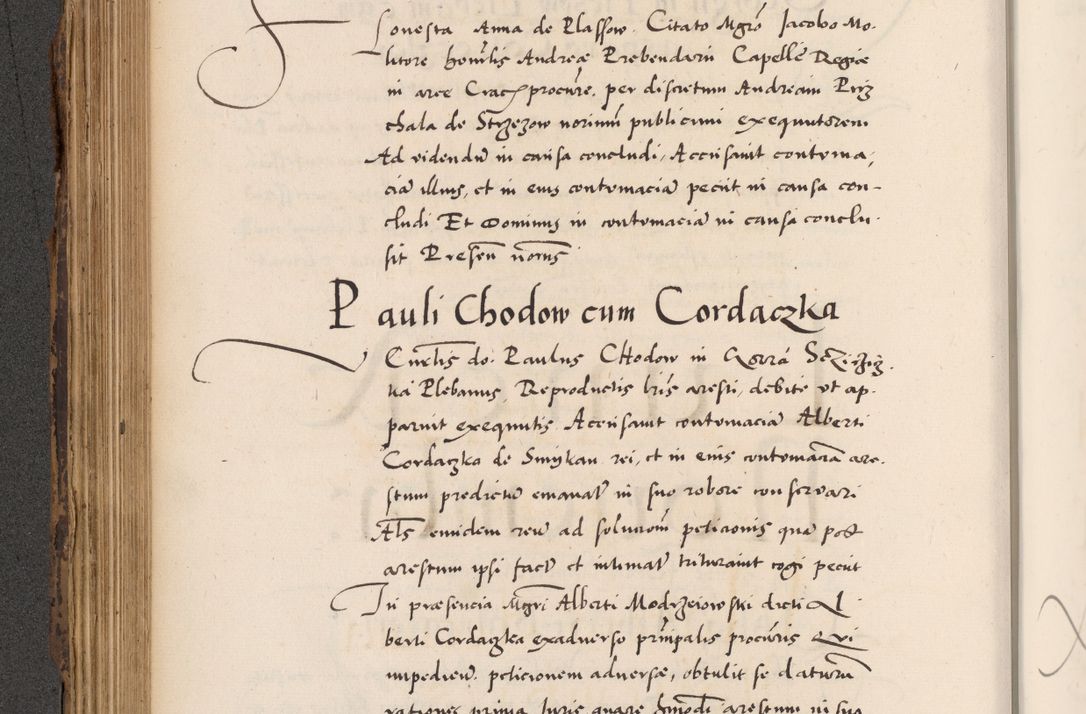 Honesta Anna de Plassow. Citato Mgrō Jacobo Mo-
litore honīlis Andreæ Prebendarii Capellē Regiæ
in arce Crac procūre. per discretum Andream Prz
chala de Strzezow notiriūm publicum exequutorem
Ad videndū in causa concludi, Accusauit contuma,
ciā illius, et in eius contumaciā petiit in causa con-
cludi Et Dominus in contumaciā in causa conclu-
sit Presēn notīus
Pauli Chodow cum Cordaczka
do. Paulus CHodow in
Plebanus, Reproductis lrīs aresti, debite ut ap-
paruit exequutis Accusauit contumaciā Alberti
Cordaczka de Smykan rei, et in eius contumāciā are-
stum predictū emanatū in suo robore conseruari
Als eundem reū ad solucionē peticionis quā post
arestum ipsi factū et intimatū trituraiut cogi petiit
In præsencia Mgri Alberti Modrzeiowski dicti Al
berti Cordaczka exaduerso prīncipalis procūris Qui
impediēn peticionem aduersæ, obtulit se daturū
rationes prima Juris quare hmōdi arestum in suo